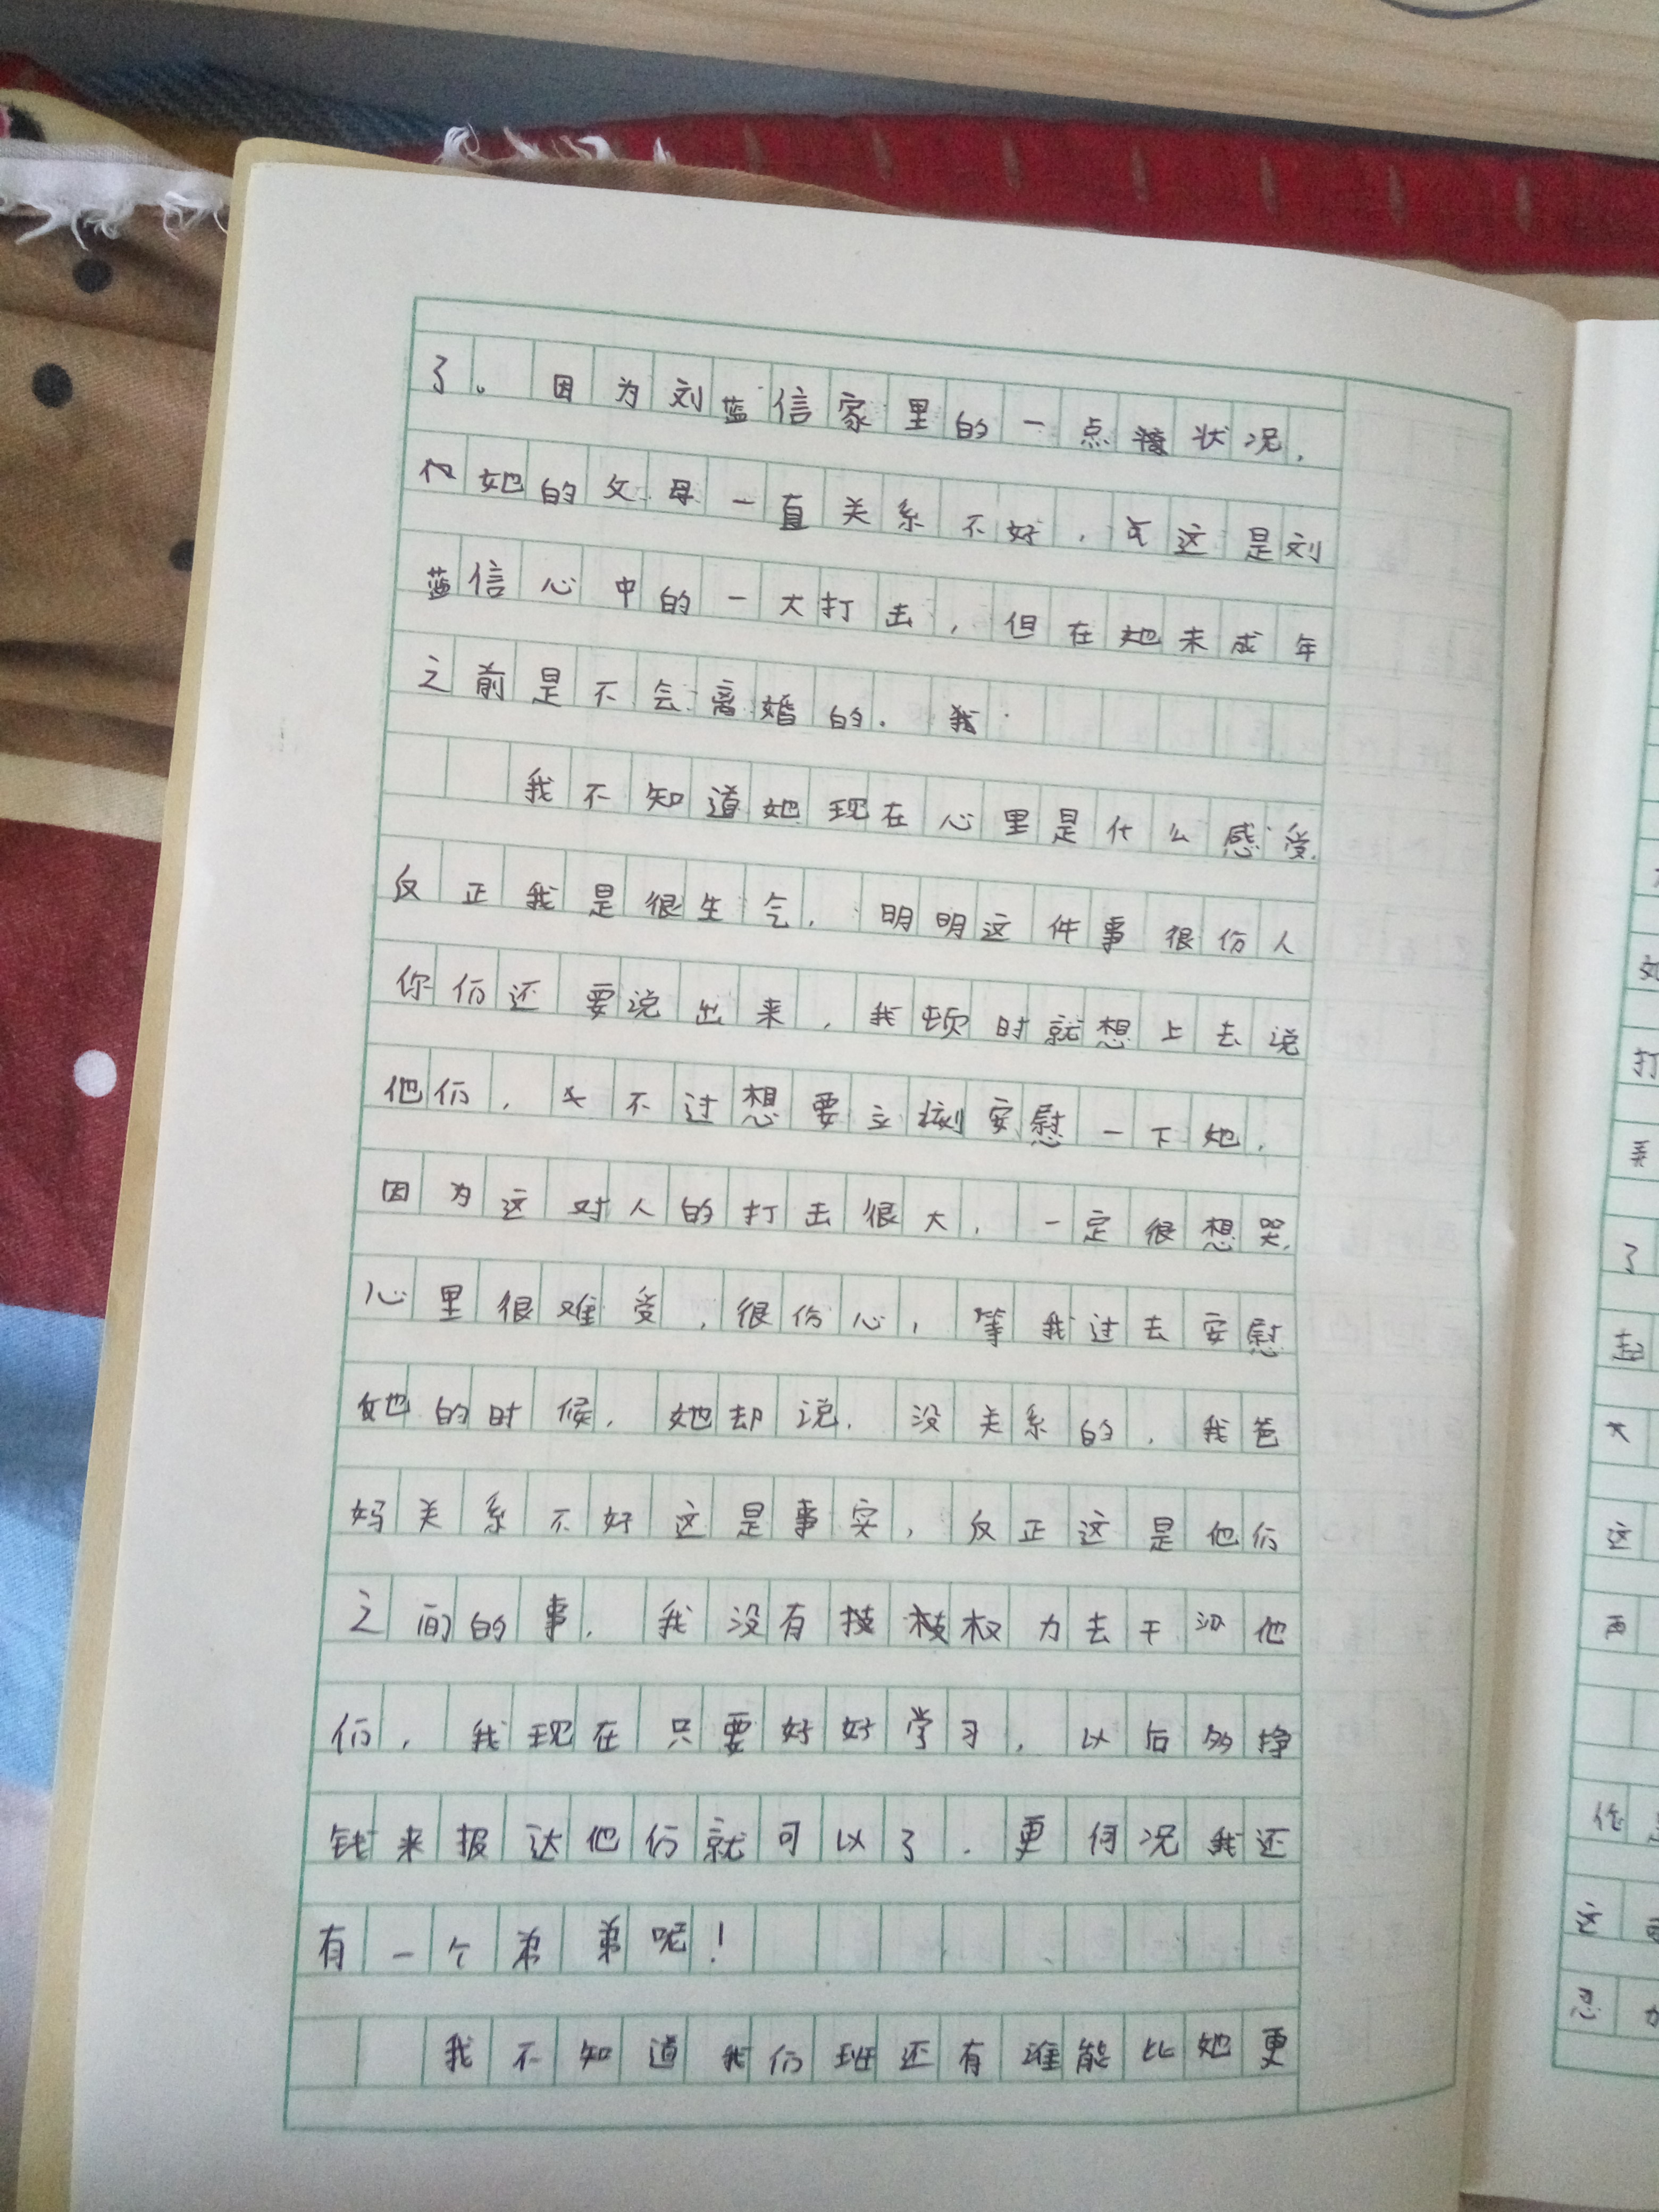 了。因为刘蓝信家里的一点状况，
她的父母一直关系不好，这是刘
蓝信心中的一大打击，但在她未成年
之前是不会离婚的。我
我不知道她现在心里是什么感受，
反正我是很生气，明明这件事很伤人
你们还要说出来，我顿时就想上去说
他们，不过想要立刻安慰一下她，
因为这对人的打击很大，一定很想哭，
心里很难受，很伤心，等我过去安慰
她的时候，她却说，没关系的，我爸
妈关系不好这是事实，反正这是他们
之间的事，我没有权力去干涉他
们，我现在只要好好学习，以后多挣
钱来报达他们就可以了，更何况我还
有一个弟弟呢！
我不知道我们班还有谁能比她更
打
了
起
大
这
两
这
忍